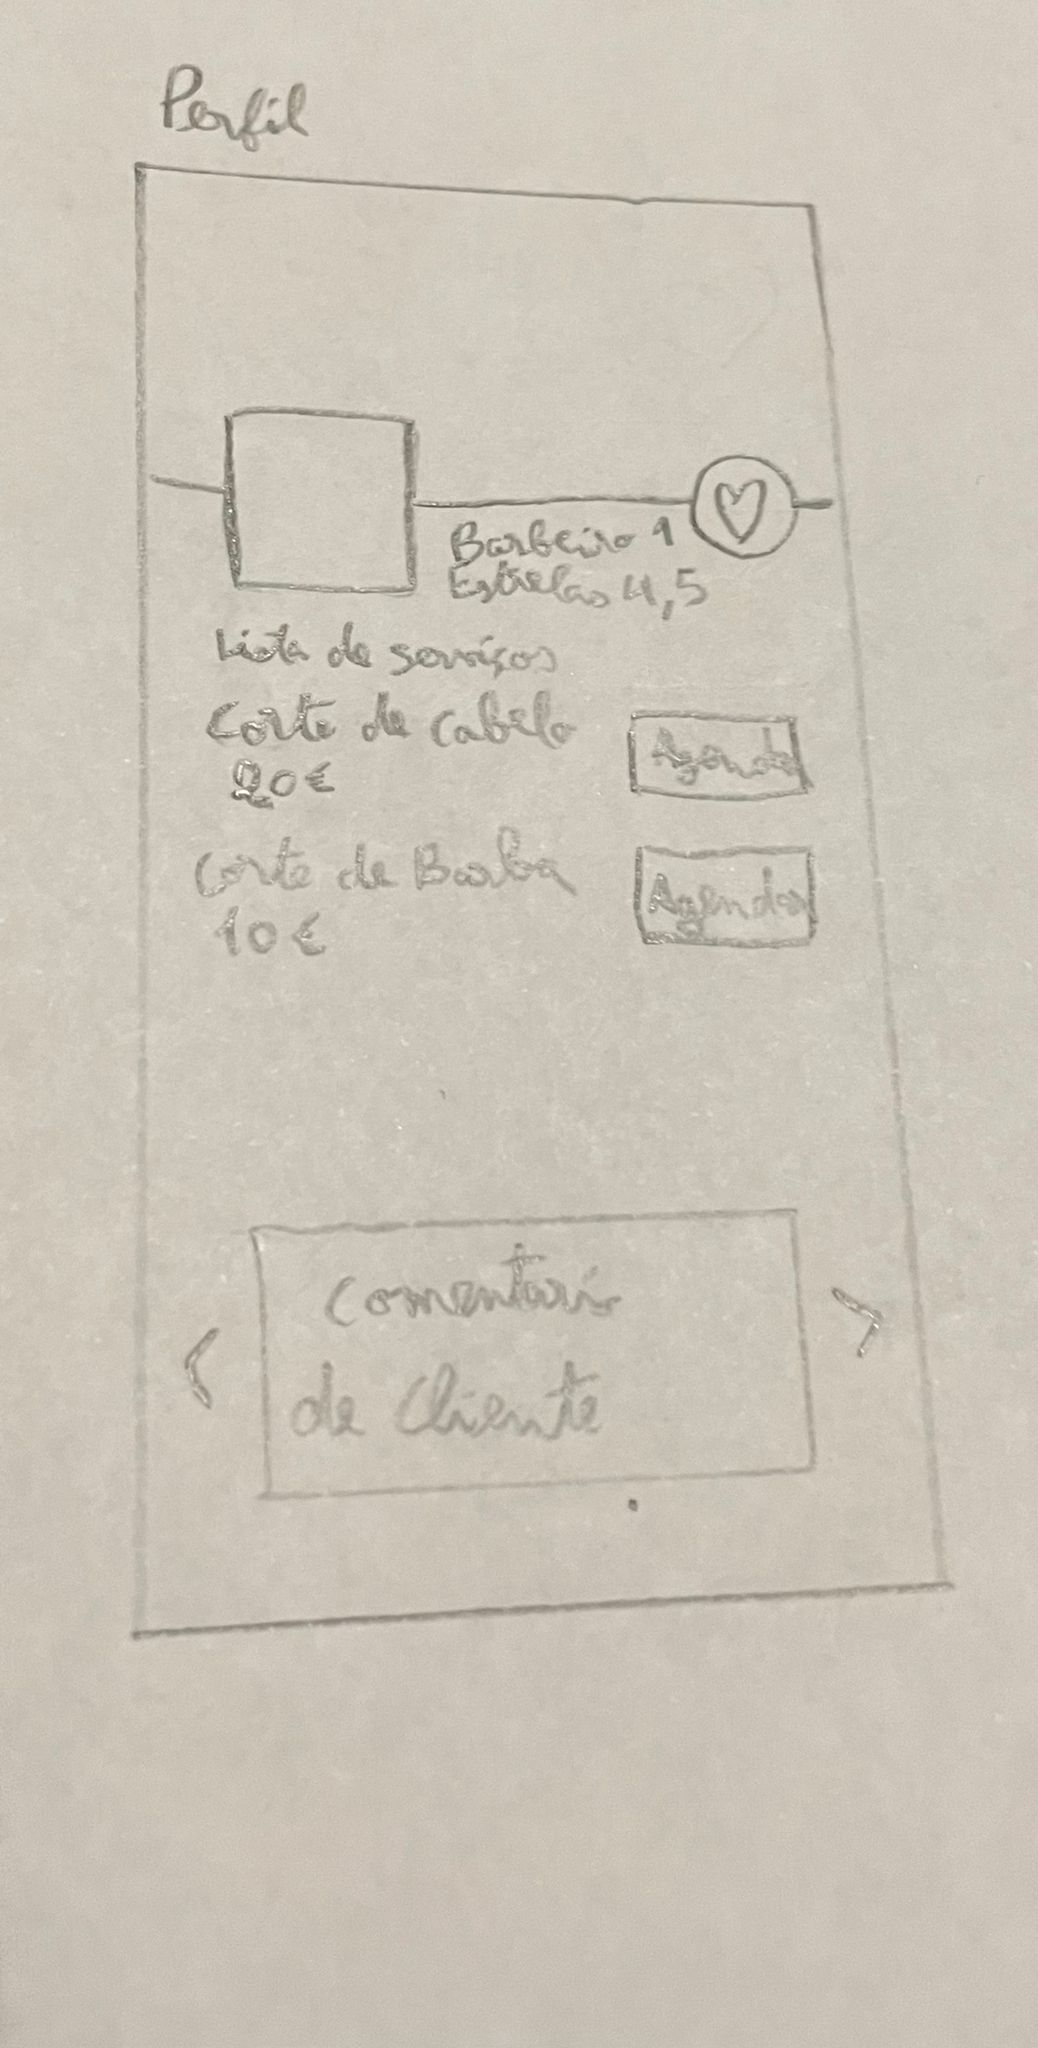 Perfil
Barbeiro 1
Estrelas 4,5
Lista de serviços
Corte de Cabelo
Agendar
20€
Corte de Barba
Agendar
10€
Comentário
de Cliente